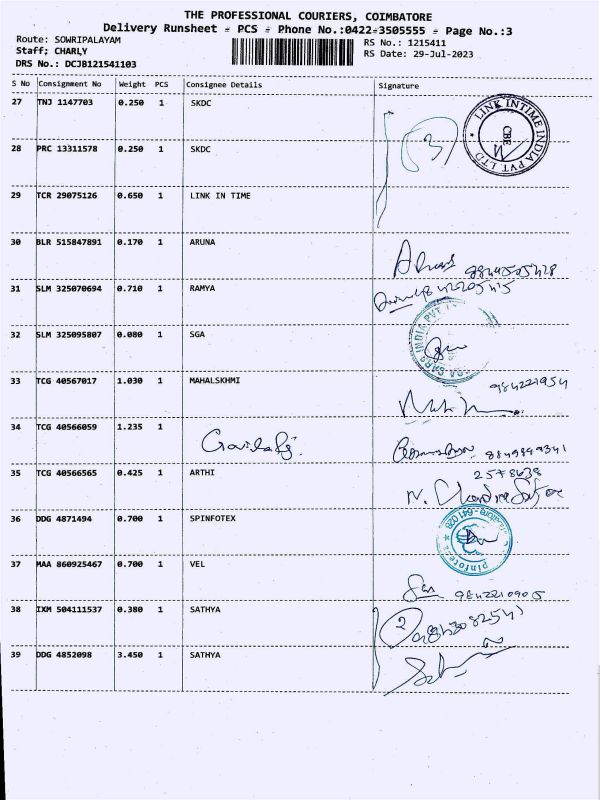 THE PROFESSIONAL COURIERS, COIMBATORE
Delivery Runsheet = PCS = Phone No.:0422-3505555 = Page No.:3
Route: SOWRIPALAYAM
RS No.: 1215411
Staff: CHARLY
RS Date: 29-Jul-2023
DRS No.: DCJB121541103
S No Consignment No Weight PCS Consignee Details Signature
27 TNJ 1147703 0.250 1 SKDC
LINK INTIME INDIA PVT. LTD
CBE
28 PRC 13311578 0.250 1 SKDC
3
29 TCR 29075126 0.650 1 LINK IN TIME
30 BLR 515847891 0.170 1 ARUNA
31 SLM 325070694 0.710 1 RAMYA
32 SLM 325095807 0.080 1 SGA
33 TCG 40567017 1.030 1 MAHALSKHMI
984221954
34 TCG 40566059 1.235 1
35 TCG 40566565 0.425 1 ARTHI
36 DDG 4871494 0.700 1 SPINFOTEX
37 MAA 860925467 0.700 1 VEL
9842209015
38 IXM 504111537 0.380 1 SATHYA
2
39 DDG 4852098 3.450 1 SATHYA